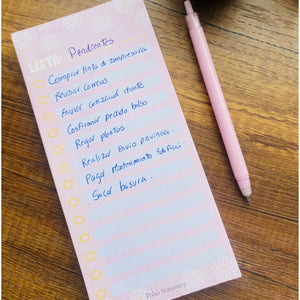 LISTA:
Pendientes
Comprar tinta de impresora
Revisar Correos
Enviar cotización cliente
Confirmar pedido bolso
Regar plantas
Realizar Envio provincia.
Pagar Mantenimiento Edificio
Sacar basura.
Pola's Stationery